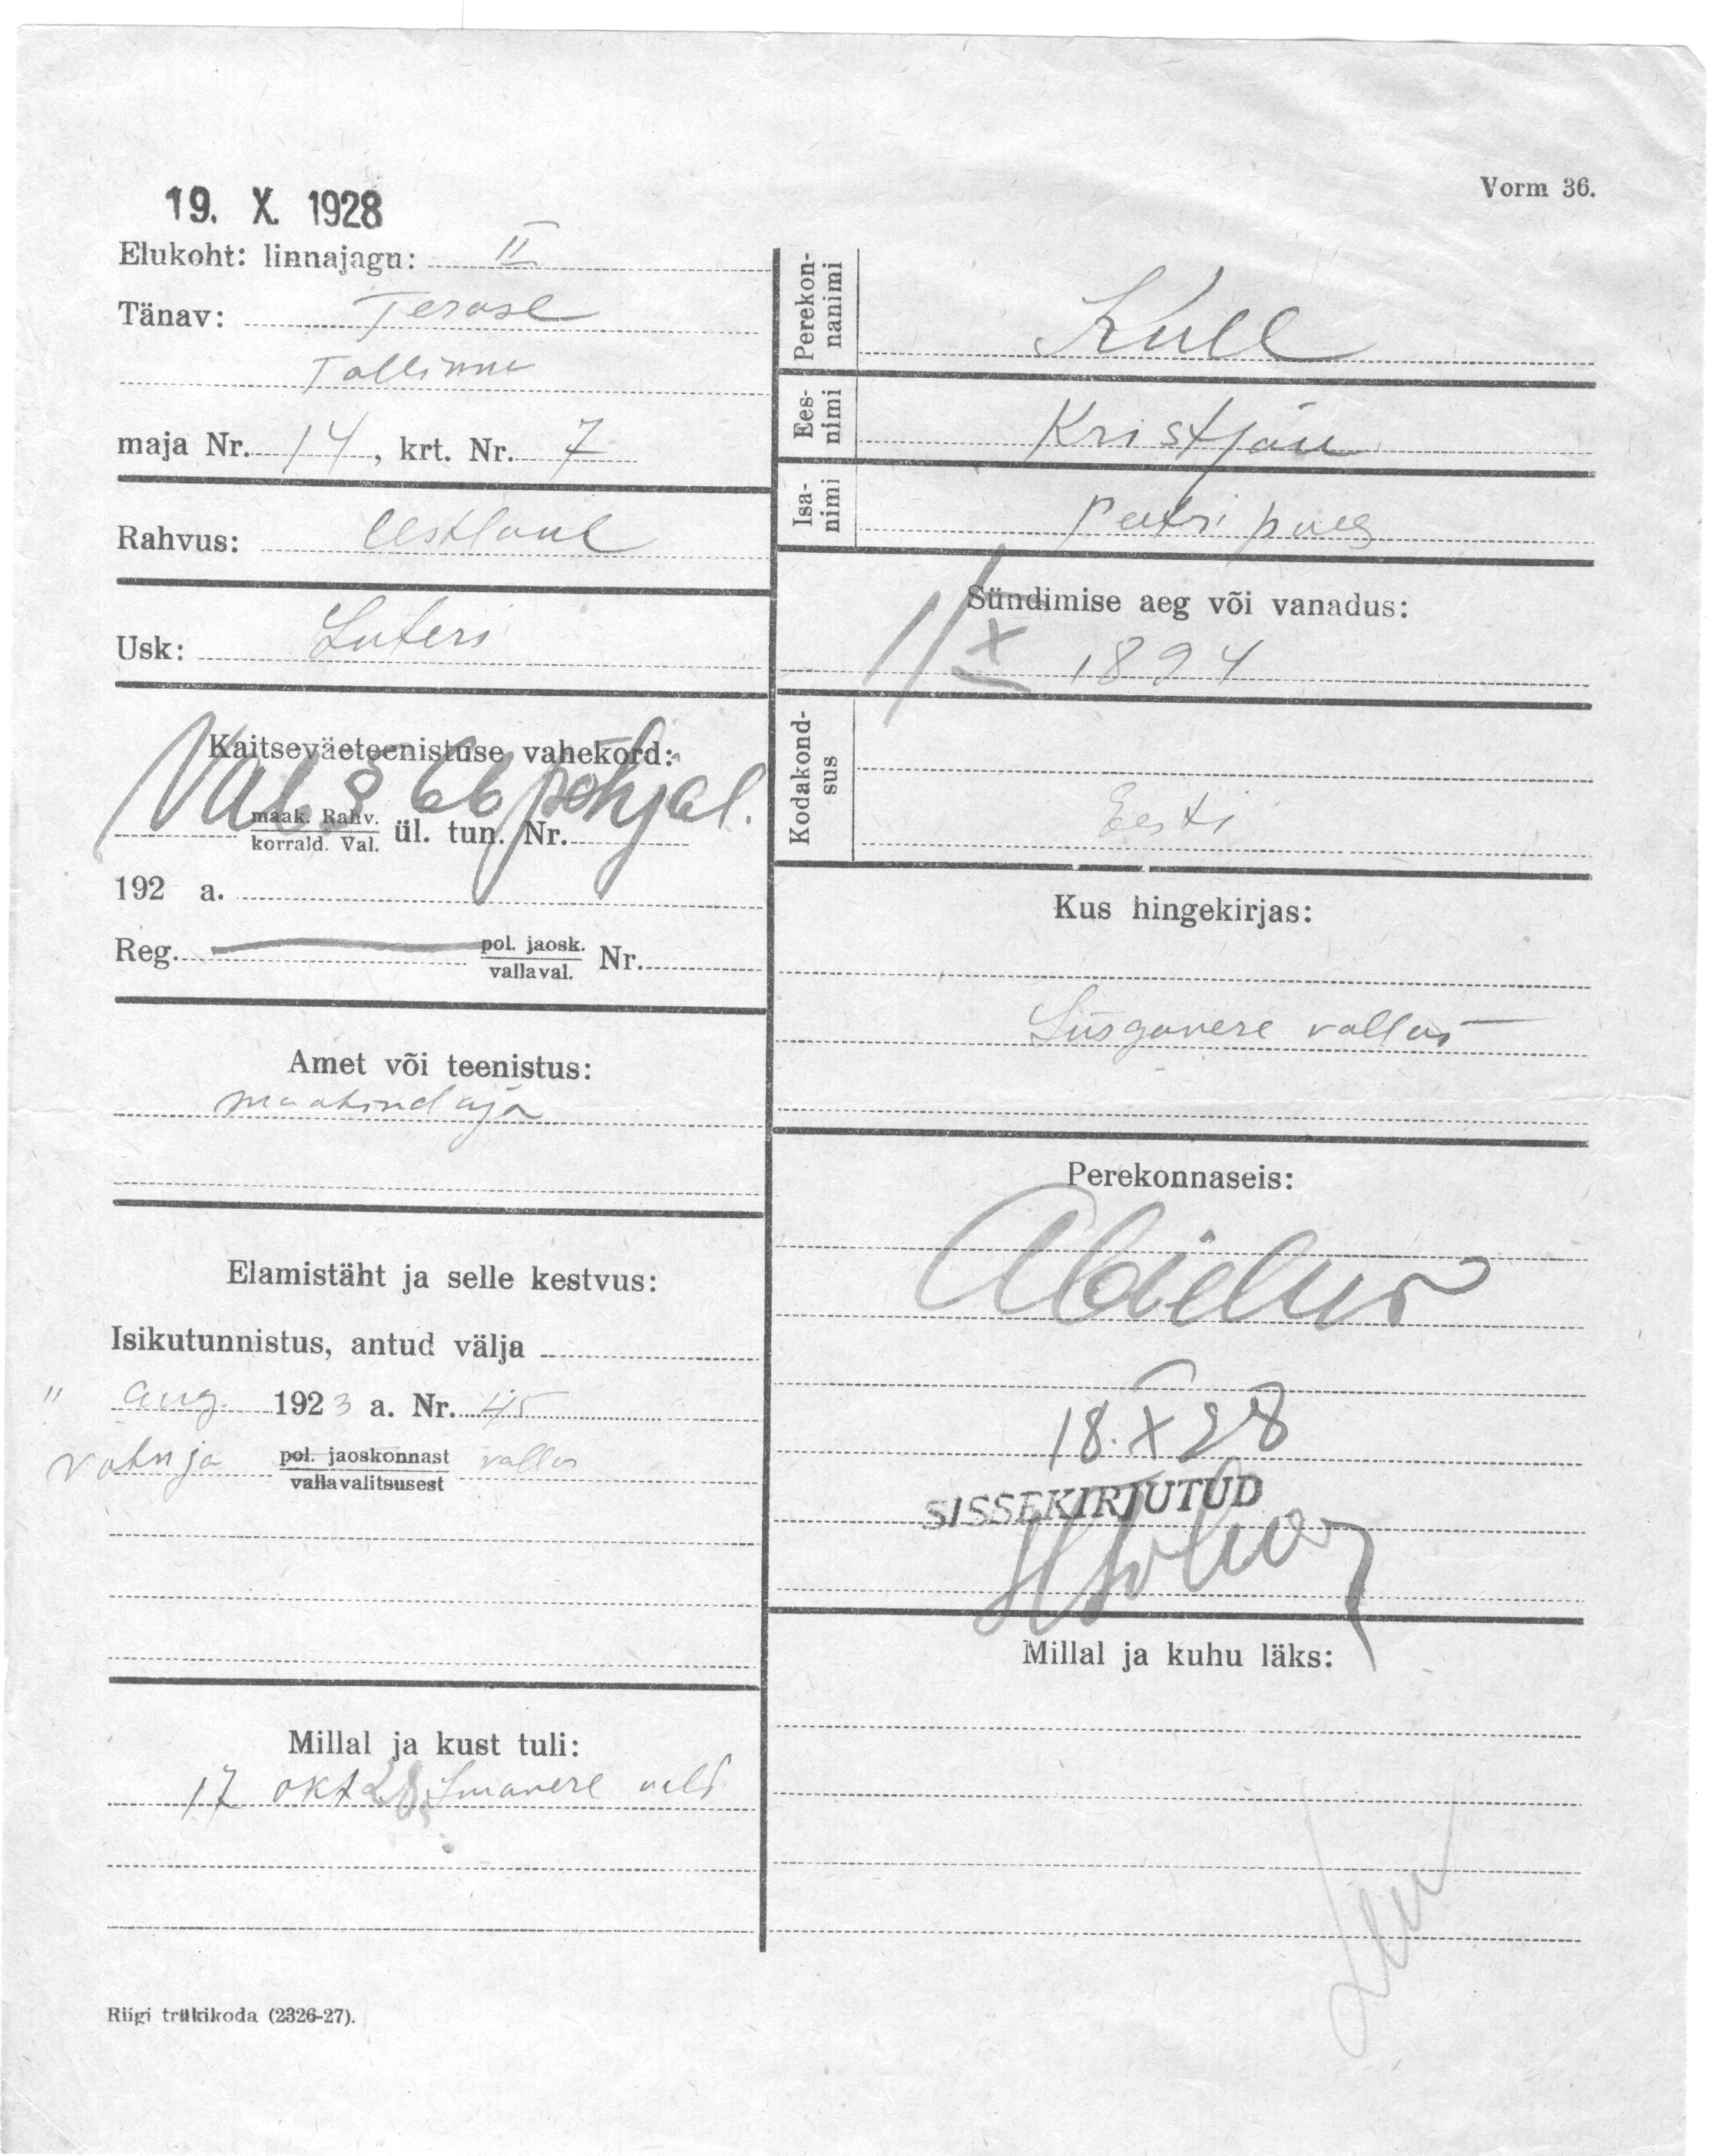 19. X. 1928
Vorm 36.
Elukoht: linnajagu: II
Tänav: Terase
Tallinna
maja Nr. 14, krt. Nr. 7
Rahvus: eestlane
Usk: Luteri
Kaitseväeteenistuse vahekord:
Vab § 66 põhjal.
maak. Rahv.
korrald. Val. ül. tun. Nr.
192 a.
Reg. pol. jaosk.
vallaval. Nr.
Amet või teenistus:
Elamistäht ja selle kestvus:
Isikutunnistus, antud välja
" aug. 1923 a. Nr. 45
pol. jaoskonnast
vallavalitsusest
Millal ja kust tuli:
17 okt 28
Perekon-
nanimi
Kull
Ees-
nimi
Kristjan
Isa-
nimi
Peetri poeg
Sündimise aeg või vanadus:
X 1894
Kodakond-
sus
Eesti
Kus hingekirjas:
vallas
Perekonnaseis:
Abielus
18. X 28
SISSEKIRJUTUD
Millal ja kuhu läks:
Riigi trükikoda (2326-27).